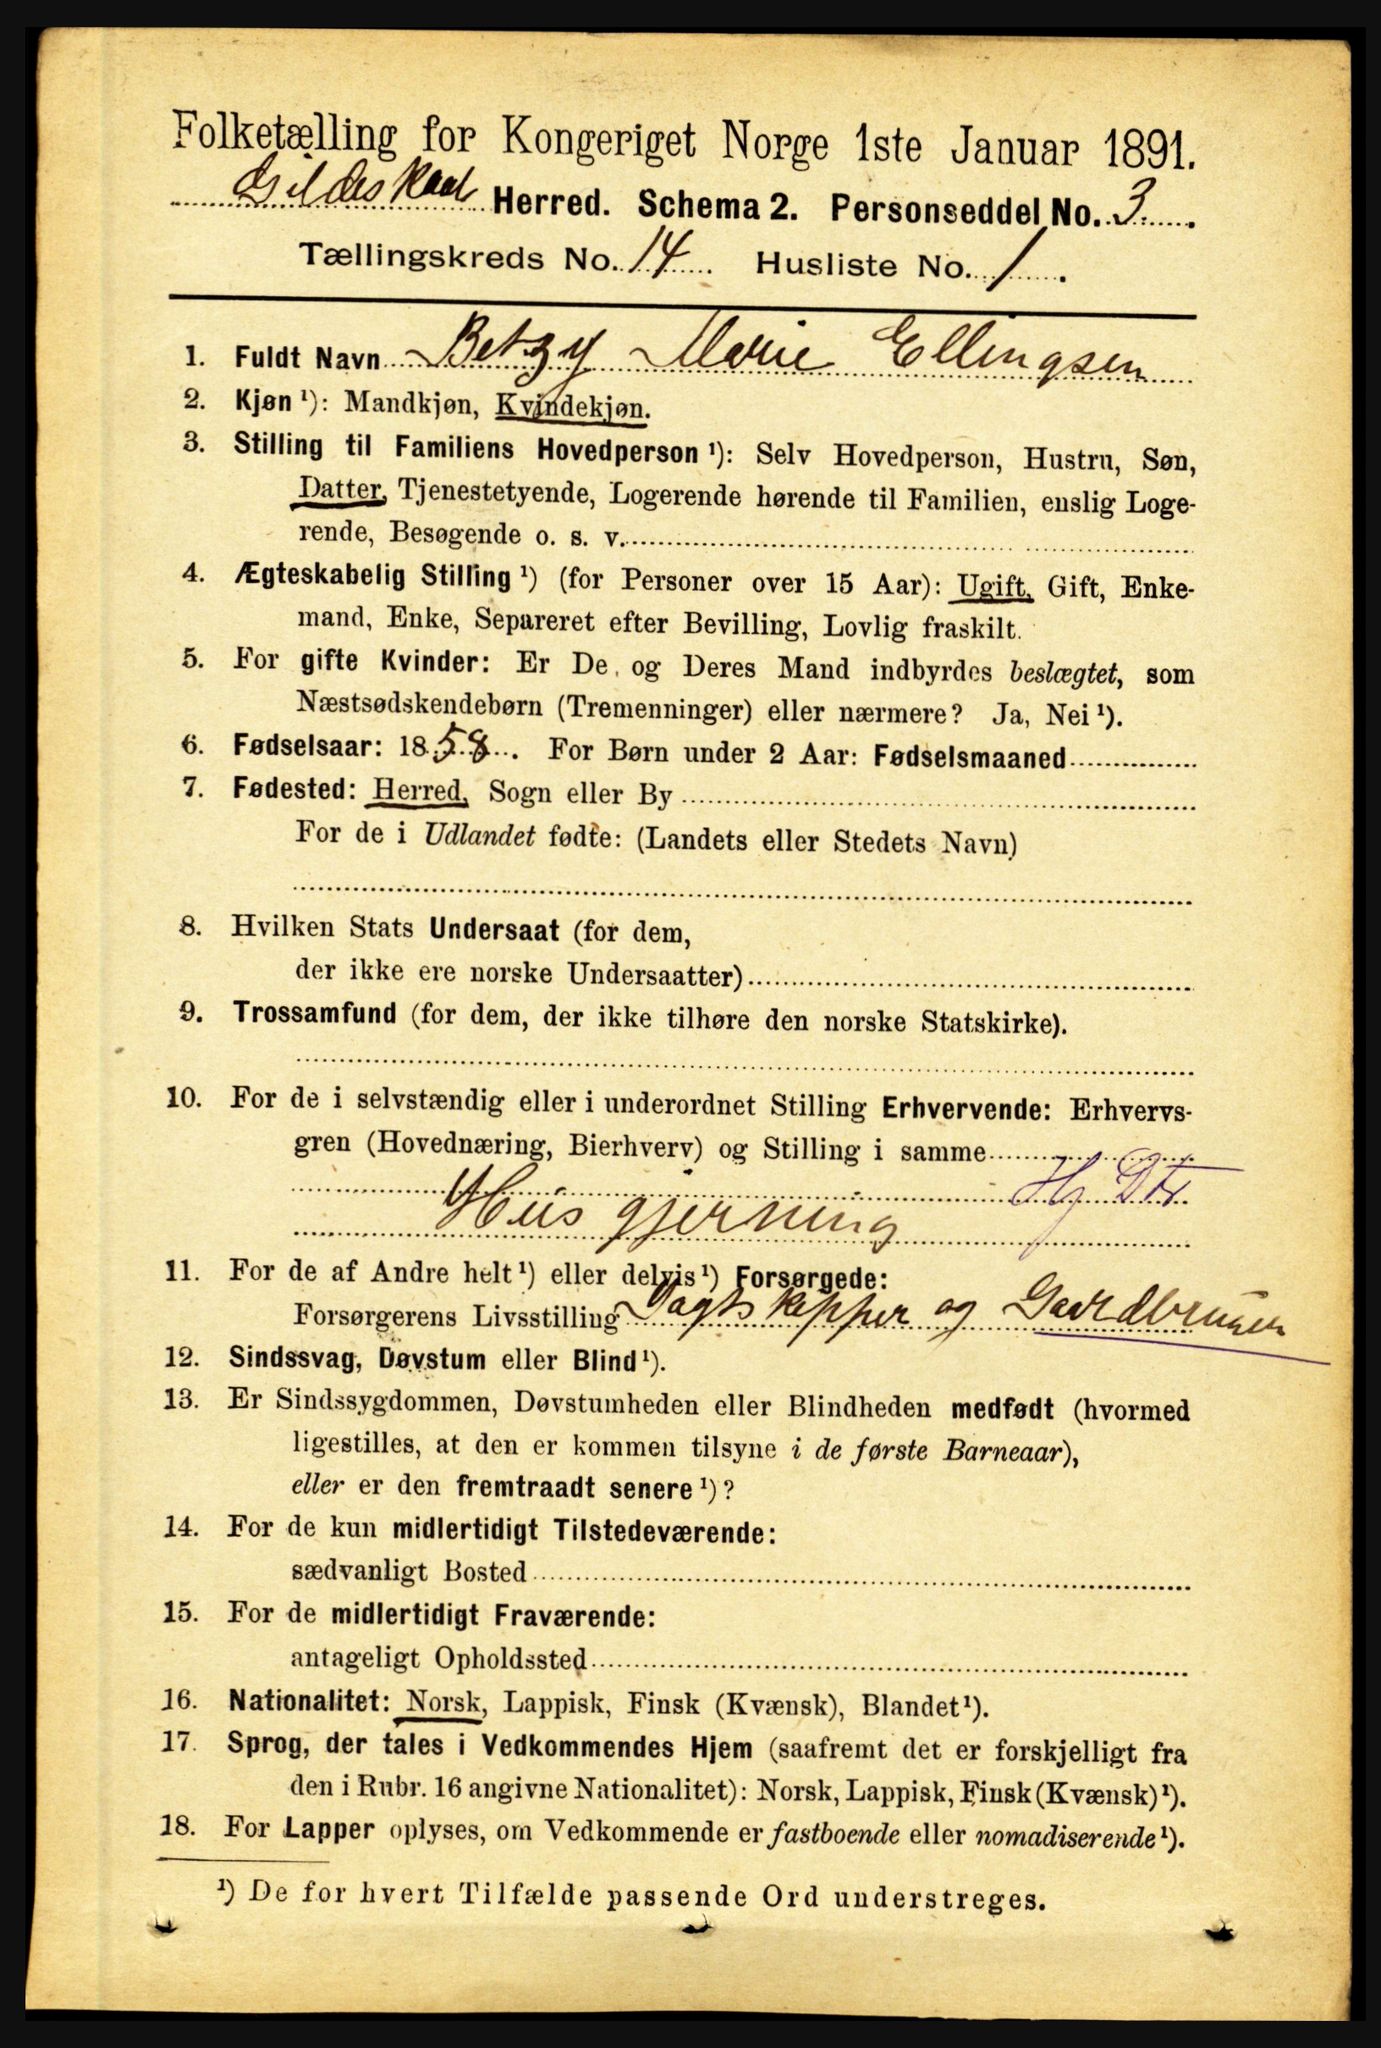 Folketælling for Kongeriget Norge 1ste Januar 1891.
Gildeskaal Herred. Schema 2. Personseddel No. 3.
Tællingskreds No. 14 Husliste No. 1
1. Fuldt Navn Betzy Marie Ellingsen
2. Kjøn ¹): Mandkjøn, Kvindekjøn.
3. Stilling til Familiens Hovedperson ¹): Selv Hovedperson, Hustru, Søn,
Datter, Tjenestetyende, Logerende hørende til Familien, enslig Loge-
rende, Besøgende o. s. v.
4. Ægteskabelig Stilling ¹) (for Personer over 15 Aar): Ugift, Gift, Enke-
mand, Enke, Separeret efter Bevilling, Lovlig fraskilt.
5. For gifte Kvinder: Er De og Deres Mand indbyrdes beslægtet, som
Næstsødskendebørn (Tremenninger) eller nærmere? Ja, Nei ¹).
6. Fødselsaar: 1858. For Børn under 2 Aar: Fødselsmaaned
7. Fødested: Herred, Sogn eller By
For de i Udlandet fødte: (Landets eller Stedets Navn)
8. Hvilken Stats Undersaat (for dem,
der ikke ere norske Undersaatter)
9. Trossamfund (for dem, der ikke tilhøre den norske Statskirke).
10. For de i selvstændig eller i underordnet Stilling Erhvervende: Erhvervs-
gren (Hovednæring, Bierhverv) og Stilling i samme
Hj Dtr
Husgjerning
11. For de af Andre helt ¹) eller delvis ¹) Forsørgede:
Forsørgerens Livsstilling Jagtskipper og Gaardbruger
12. Sindssvag, Døvstum eller Blind ¹).
13. Er Sindssygdommen, Døvstumheden eller Blindheden medfødt (hvormed
ligestilles, at den er kommen tilsyne i de første Barneaar),
eller er den fremtraadt senere ¹)?
14. For de kun midlertidigt Tilstedeværende:
sædvanligt Bosted
15. For de midlertidigt Fraværende:
antageligt Opholdssted
16. Nationalitet: Norsk, Lappisk, Finsk (Kvænsk), Blandet ¹).
17. Sprog, der tales i Vedkommendes Hjem (saafremt det er forskjelligt fra
den i Rubr. 16 angivne Nationalitet): Norsk, Lappisk, Finsk (Kvænsk) ¹).
18. For Lapper oplyses, om Vedkommende er fastboende eller nomadiserende ¹).
¹) De for hvert Tilfælde passende Ord understreges.